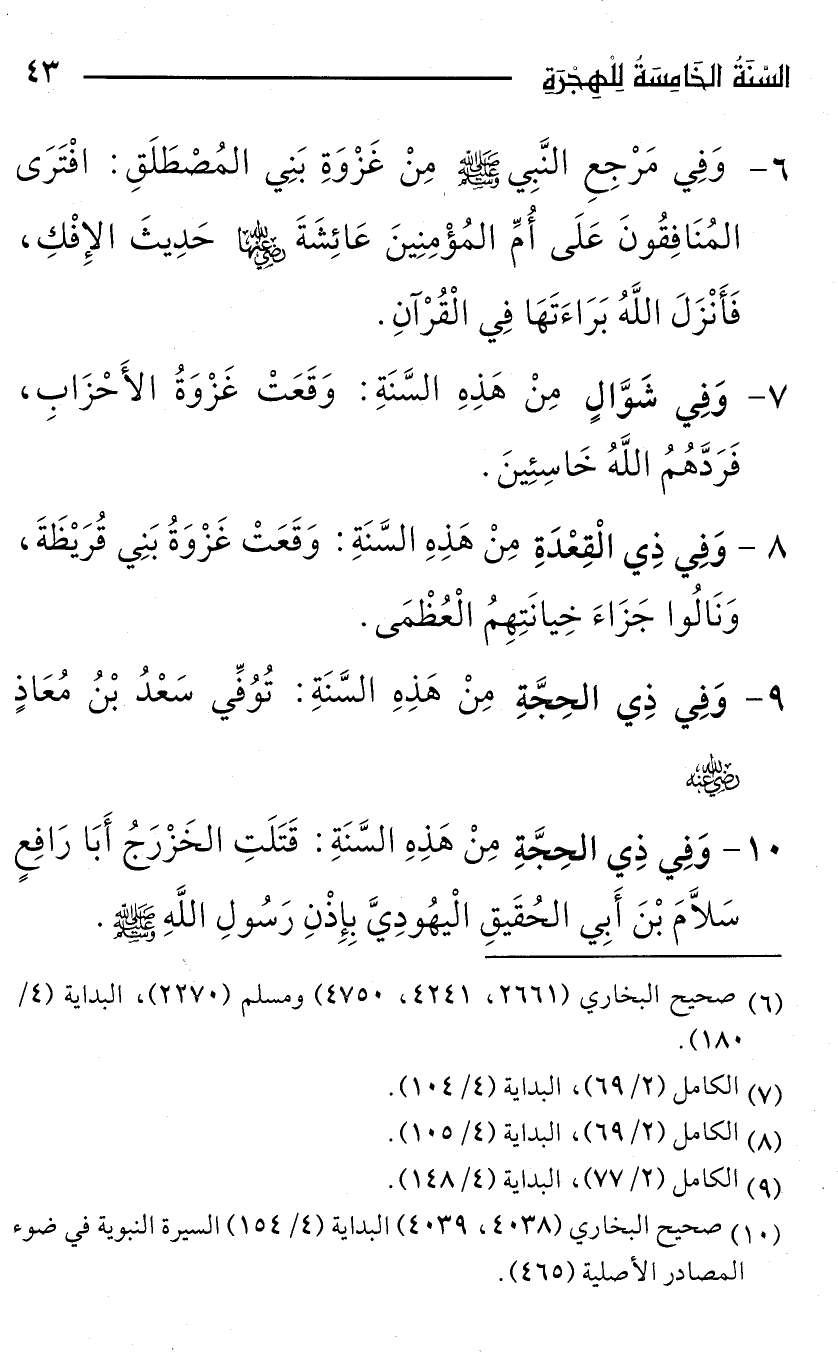 السَّنَةُ الخَامِسَةُ لِلْهِجْرَةِ ٤٣
٦- وَفِي مَرْجِعِ النَّبِي ﷺ مِنْ غَزْوَةِ بَنِي المُصْطَلَقِ: افْتَرَى
المُنَافِقُونَ عَلَى أُمِّ المُؤْمِنِينَ عَائِشَةَ رضي الله عنها حَدِيثَ الإِفْكِ،
فَأَنْزَلَ اللَّهُ بَرَاءَتَهَا فِي الْقُرْآنِ.
٧- وَفِي شَوَّالٍ مِنْ هَذِهِ السَّنَةِ: وَقَعَتْ غَزْوَةُ الأَحْزَابِ،
فَرَدَّهُمُ اللَّهُ خَاسِئِينَ.
٨- وَفِي ذِي الْقِعْدَةِ مِنْ هَذِهِ السَّنَةِ: وَقَعَتْ غَزْوَةُ بَنِي قُرَيْظَةَ،
وَنَالُوا جَزَاءَ خِيانَتِهِمُ الْعُظْمَى.
٩- وَفِي ذِي الحِجَّةِ مِنْ هَذِهِ السَّنَةِ: تُوُفِّي سَعْدُ بْنُ مُعَاذٍ
رضي الله عنه
١٠- وَفِي ذِي الحِجَّةِ مِنْ هَذِهِ السَّنَةِ: قَتَلَتِ الخَزْرَجُ أَبَا رَافِعٍ
سَلاَّمَ بْنَ أَبِي الحُقَيقِ الْيهُودِيَّ بِإِذْنِ رَسُولِ اللَّهِ ﷺ.
(٦) صحيح البخاري (٢٦٦١، ٤٢٤١، ٤٧٥٠) ومسلم (٢٢٧٠)، البداية (٤/
١٨٠).
(٧) الكامل (٢/ ٦٩)، البداية (٤/ ١٠٤).
(٨) الكامل (٢/ ٦٩)، البداية (٤/ ١٠٥).
(٩) الكامل (٢/ ٧٧)، البداية (٤/ ١٤٨).
(١٠) صحيح البخاري (٤٠٣٨، ٤٠٣٩) البداية (٤/ ١٥٤) السيرة النبوية في ضوء
المصادر الأصلية (٤٦٥).